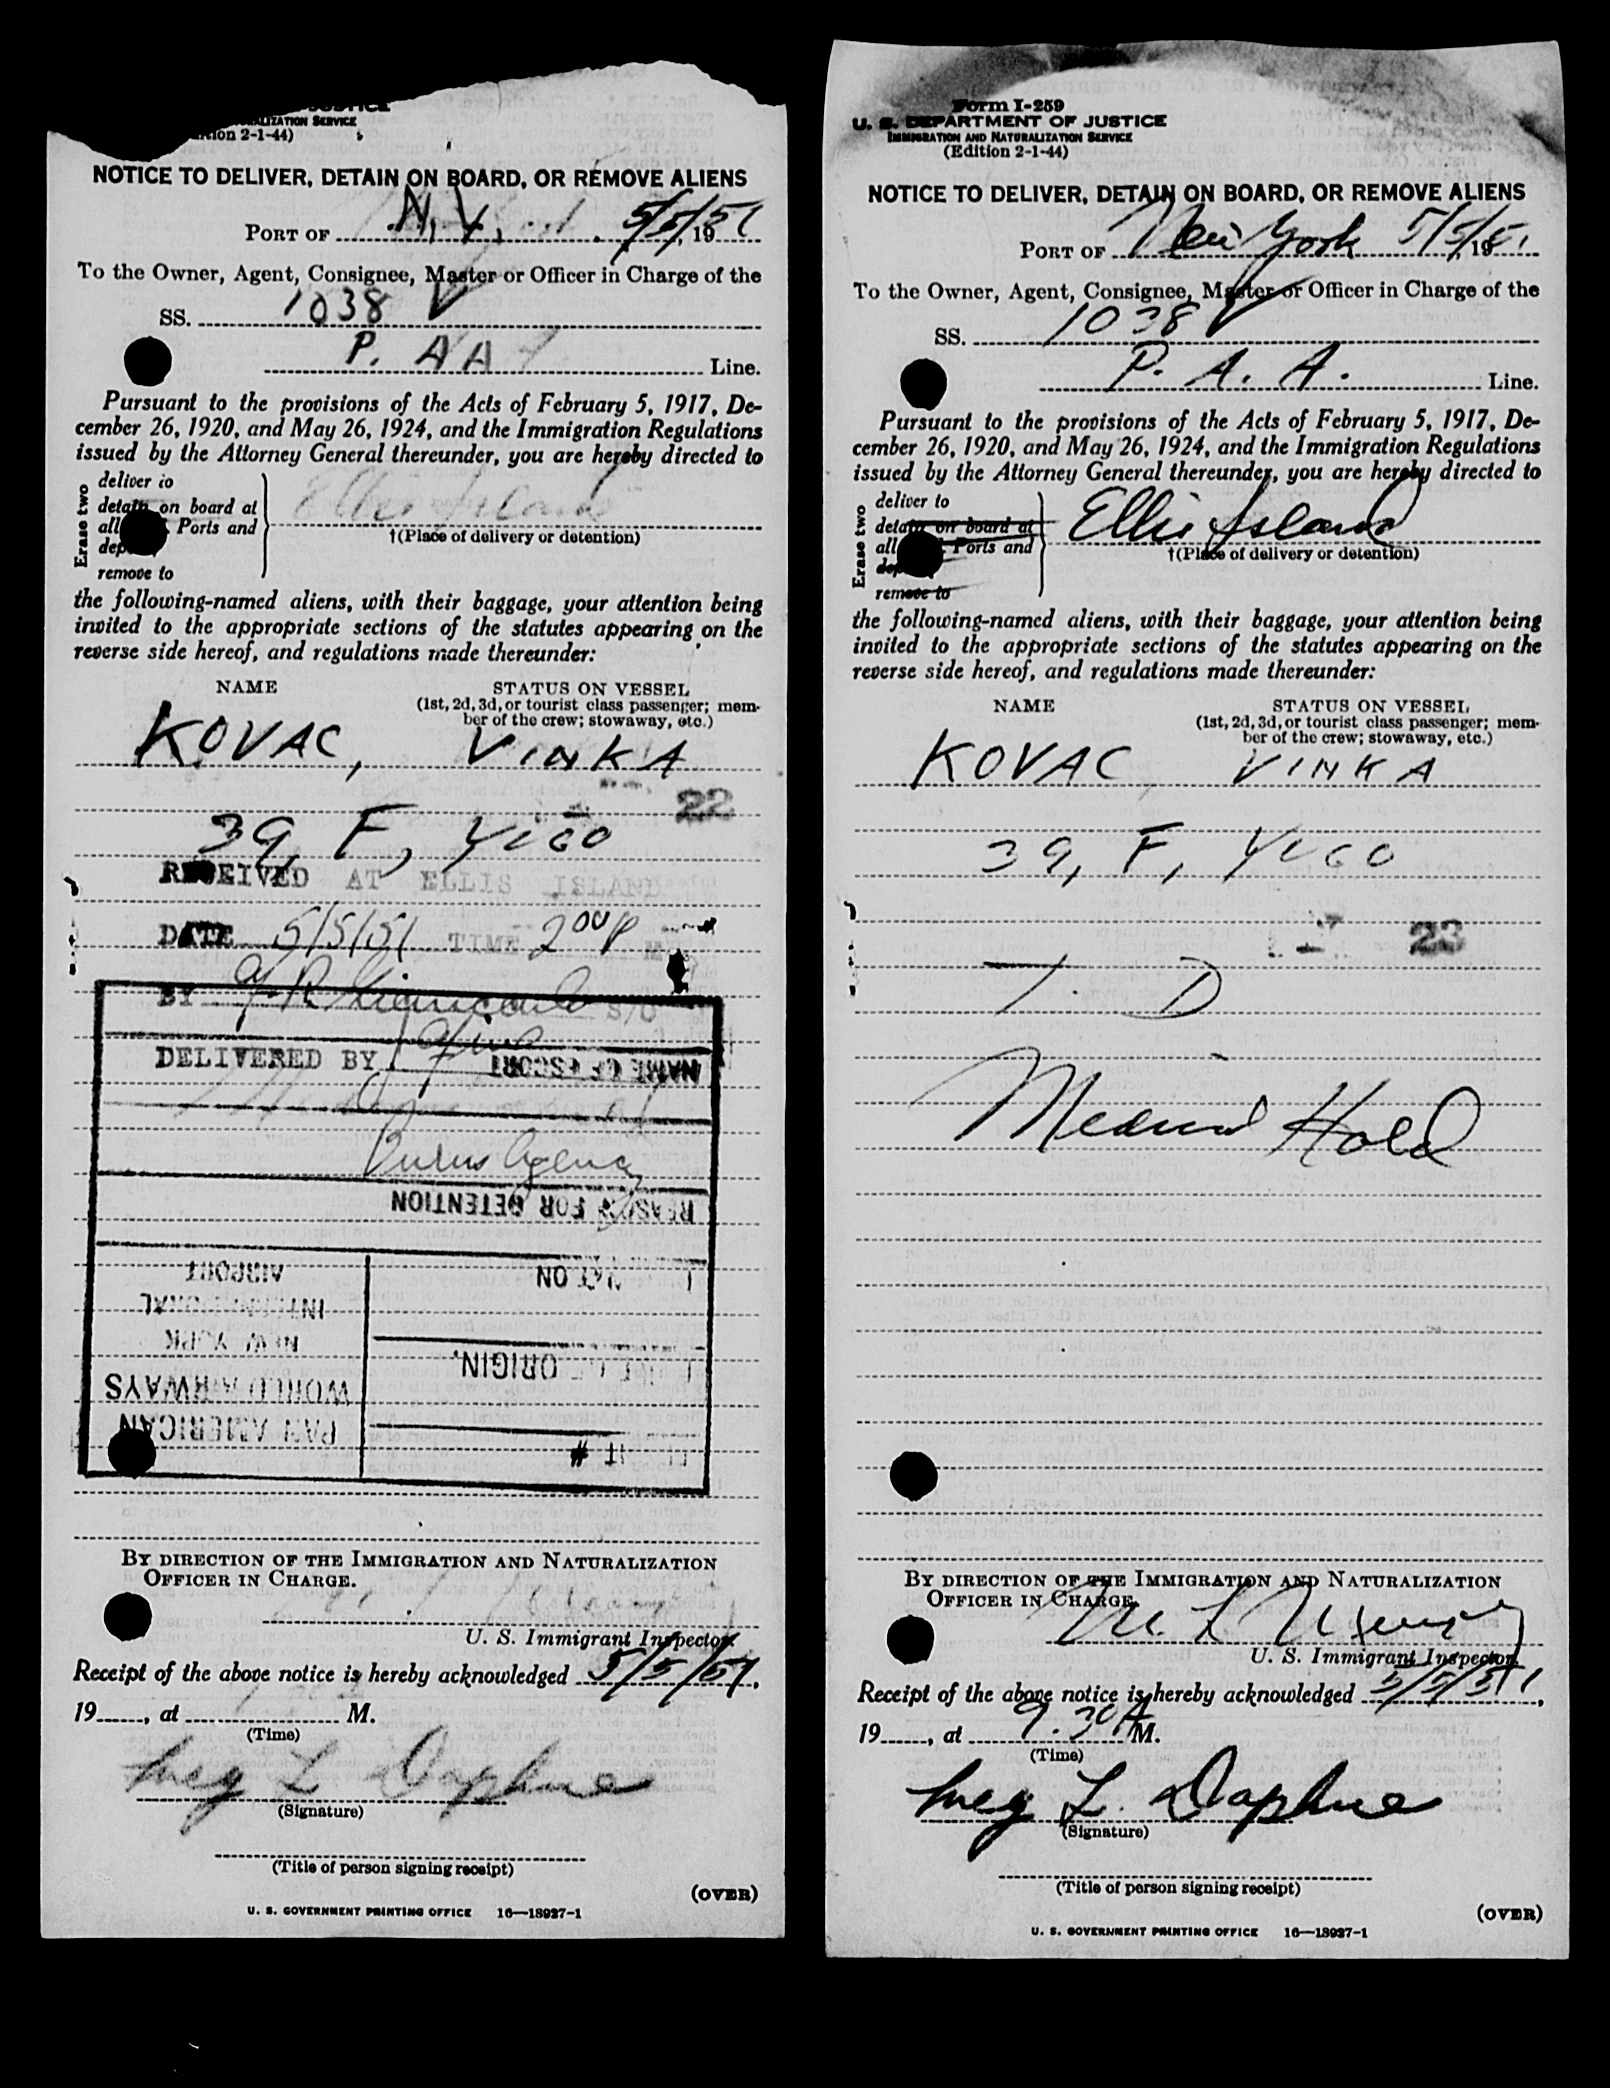 JUSTICE
NATURALIZATION SERVICE
(Edition 2-1-44)
NOTICE TO DELIVER, DETAIN ON BOARD, OR REMOVE ALIENS
PORT OF N.Y. 5/5/51, 19
To the Owner, Agent, Consignee, Master or Officer in Charge of the
SS. 1038
P. A A Line.
Pursuant to the provisions of the Acts of February 5, 1917, De-
cember 26, 1920, and May 26, 1924, and the Immigration Regulations
issued by the Attorney General thereunder, you are hereby directed to
Erase two
deliver to
detain on board at
all Ports and
remove to
Ellis Island
†(Place of delivery or detention)
the following-named aliens, with their baggage, your attention being
invited to the appropriate sections of the statutes appearing on the
reverse side hereof, and regulations made thereunder:
NAME STATUS ON VESSEL
(1st, 2d, 3d, or tourist class passenger; mem-
ber of the crew; stowaway, etc.)
KOVAC, VINKA
22
39, F, YUGO
RECEIVED AT ELLIS ISLAND
DATE 5/5/51 TIME 2 00 P M
BY S/O
DELIVERED BY
NAME OF ESCORT
Agency
REASON FOR DETENTION
AIRPORT
INTERNATIONAL
NEW YORK
WORLD AIRWAYS
PAN AMERICAN
ORIGIN.
#
BY DIRECTION OF THE IMMIGRATION AND NATURALIZATION
OFFICER IN CHARGE.
U. S. Immigrant Inspector.
Receipt of the above notice is hereby acknowledged 5/5/51,
19, at M.
(Time)
L Daphne
(Signature)
(Title of person signing receipt)
(OVER)
U. S. GOVERNMENT PRINTING OFFICE 16—18927-1
Form I-259
U. S. DEPARTMENT OF JUSTICE
IMMIGRATION AND NATURALIZATION SERVICE
(Edition 2-1-44)
NOTICE TO DELIVER, DETAIN ON BOARD, OR REMOVE ALIENS
PORT OF New York 5/5/51, 19
To the Owner, Agent, Consignee, Master or Officer in Charge of the
SS. 1038
P. A. A. Line.
Pursuant to the provisions of the Acts of February 5, 1917, De-
cember 26, 1920, and May 26, 1924, and the Immigration Regulations
issued by the Attorney General thereunder, you are hereby directed to
Erase two
deliver to
detain on board at
all Ports and
remove to
Ellis Island
†(Place of delivery or detention)
the following-named aliens, with their baggage, your attention being
invited to the appropriate sections of the statutes appearing on the
reverse side hereof, and regulations made thereunder:
NAME STATUS ON VESSEL
(1st, 2d, 3d, or tourist class passenger; mem-
ber of the crew; stowaway, etc.)
KOVAC VINKA
39, F, YUGO
23
T. D
Medical Hold
BY DIRECTION OF THE IMMIGRATION AND NATURALIZATION
OFFICER IN CHARGE.
U. S. Immigrant Inspector.
Receipt of the above notice is hereby acknowledged 5/5/51,
19, at 9.30A M.
(Time)
L. Daphne
(Signature)
(Title of person signing receipt)
(OVER)
U. S. GOVERNMENT PRINTING OFFICE 16—18927-1